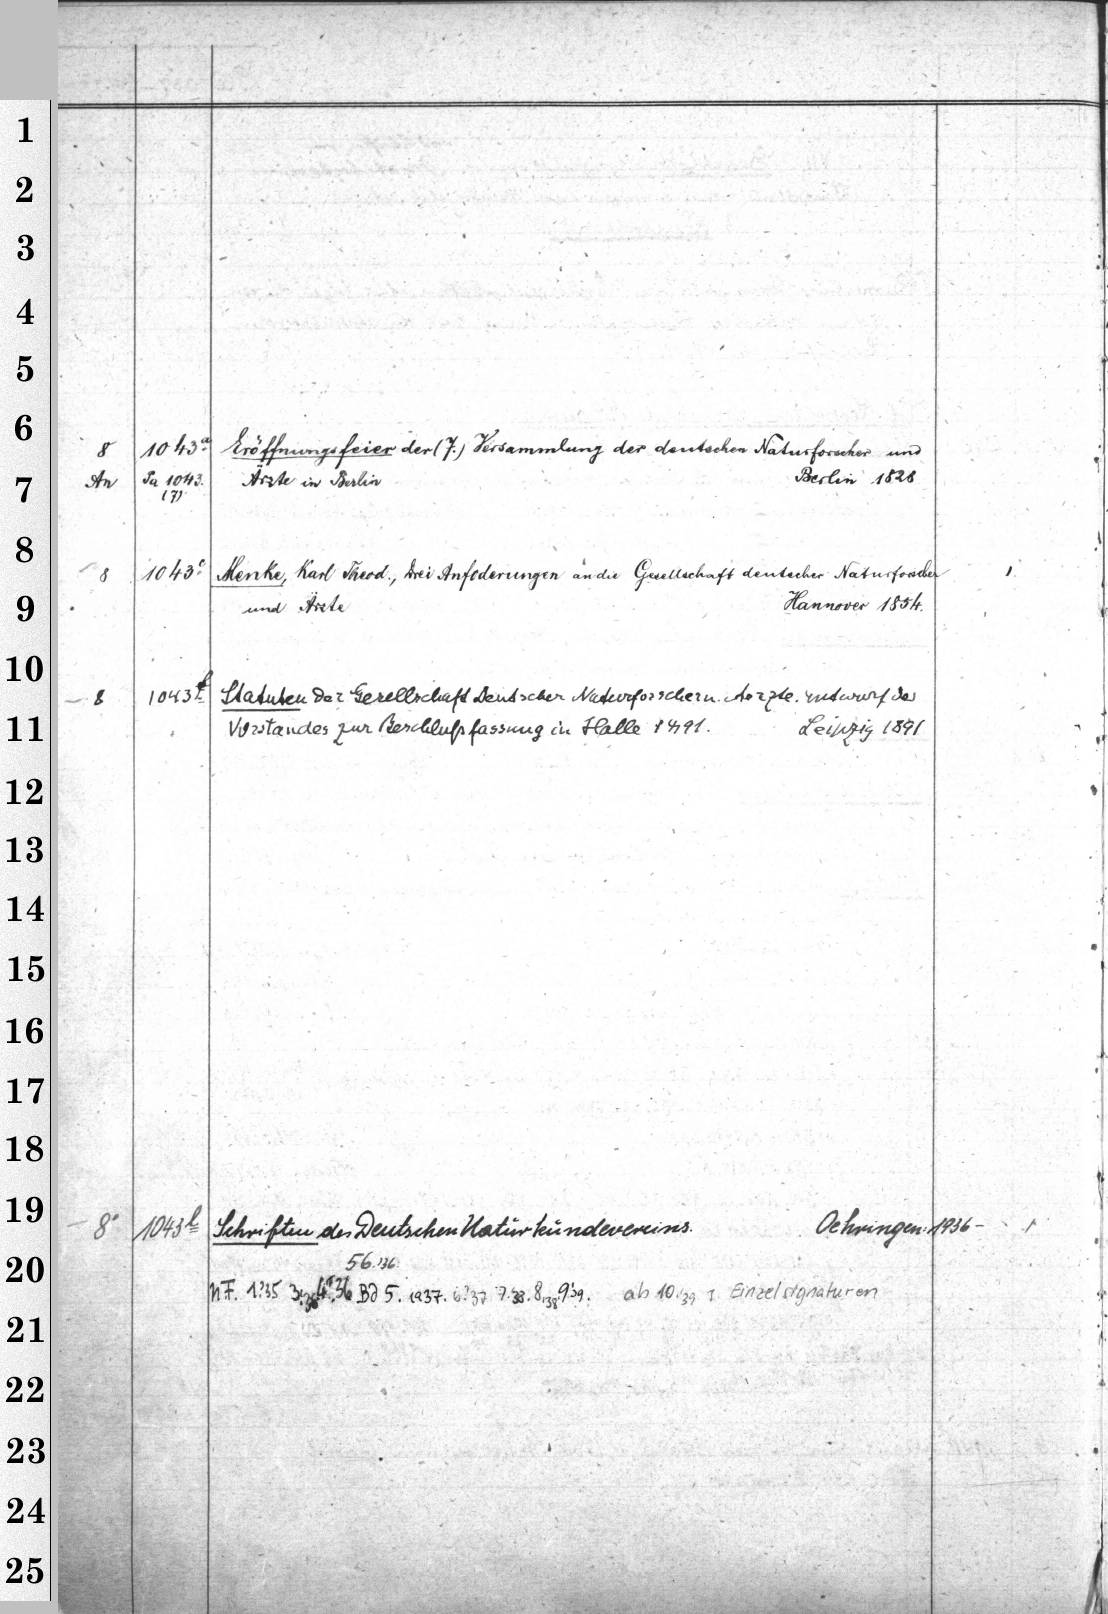 1
2
3
4
5
6
8 1043a. Eröffnungsfeier der (7.) Versammlung der deutschen Naturforscher und
7
An Pa 1043. Ärzte in Berlin Berlin 1828
(7)
8
8 1043c. Menke, Karl Theod., Drei Anfoderungen an die Gesellschaft deutscher Naturforscher 1
9
und Ärzte Hannover 1854.
10
– 8 1043f Statuten der Gesellschaft Deutscher Naturforscher u. Aerzte. Entwurf des
11
Vorstandes zur Beschlußfassung in Halle 1891. Leipzig 1891
12
13
14
15
16
17
18
19
– 8° 1043l Schriften des Deutschen Naturkundevereins. Oehringen: 1936– 1
20
56.'36
N.F. 1.'35 3. 4.'36 Bd 5. 1937. 6.'37 7.'38. 8,'38 9'39. ab 10.'39 Einzelsignaturen
21
22
23
24
25